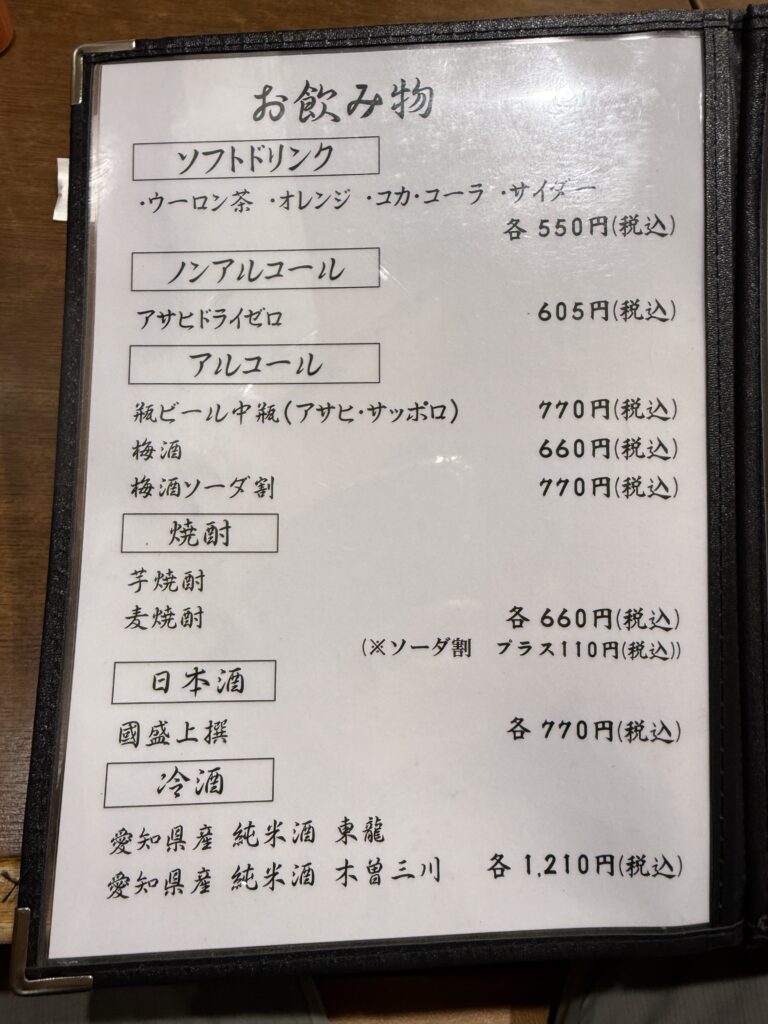 お飲み物
ソフトドリンク
・ウーロン茶 ・オレンジ ・コカ・コーラ ・サイダー
各 550円(税込)
ノンアルコール
アサヒドライゼロ 605円(税込)
アルコール
瓶ビール中瓶(アサヒ・サッポロ) 770円(税込)
梅酒 660円(税込)
梅酒ソーダ割 770円(税込)
焼酎
芋焼酎
麦焼酎 各 660円(税込)
(※ソーダ割 プラス110円(税込))
日本酒
國盛上撰 各 770円(税込)
冷酒
愛知県産 純米酒 東龍
愛知県産 純米酒 木曽三川 各 1,210円(税込)